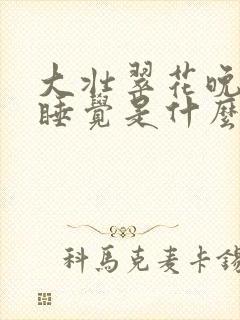 大壯翠花晚
睡覺是什麼
科馬克麦卡錫